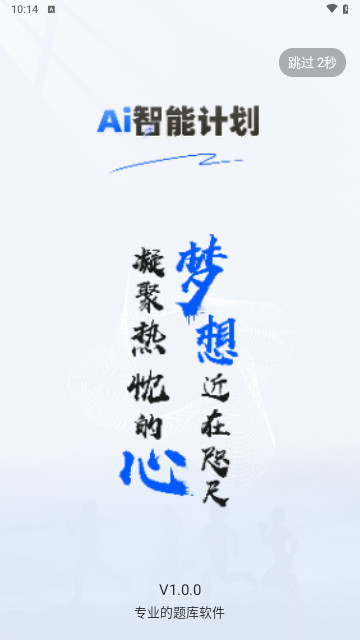 10:14
跳过 2秒
Ai智能计划
梦想近在咫尺
凝聚热忱的心
V1.0.0
专业的题库软件